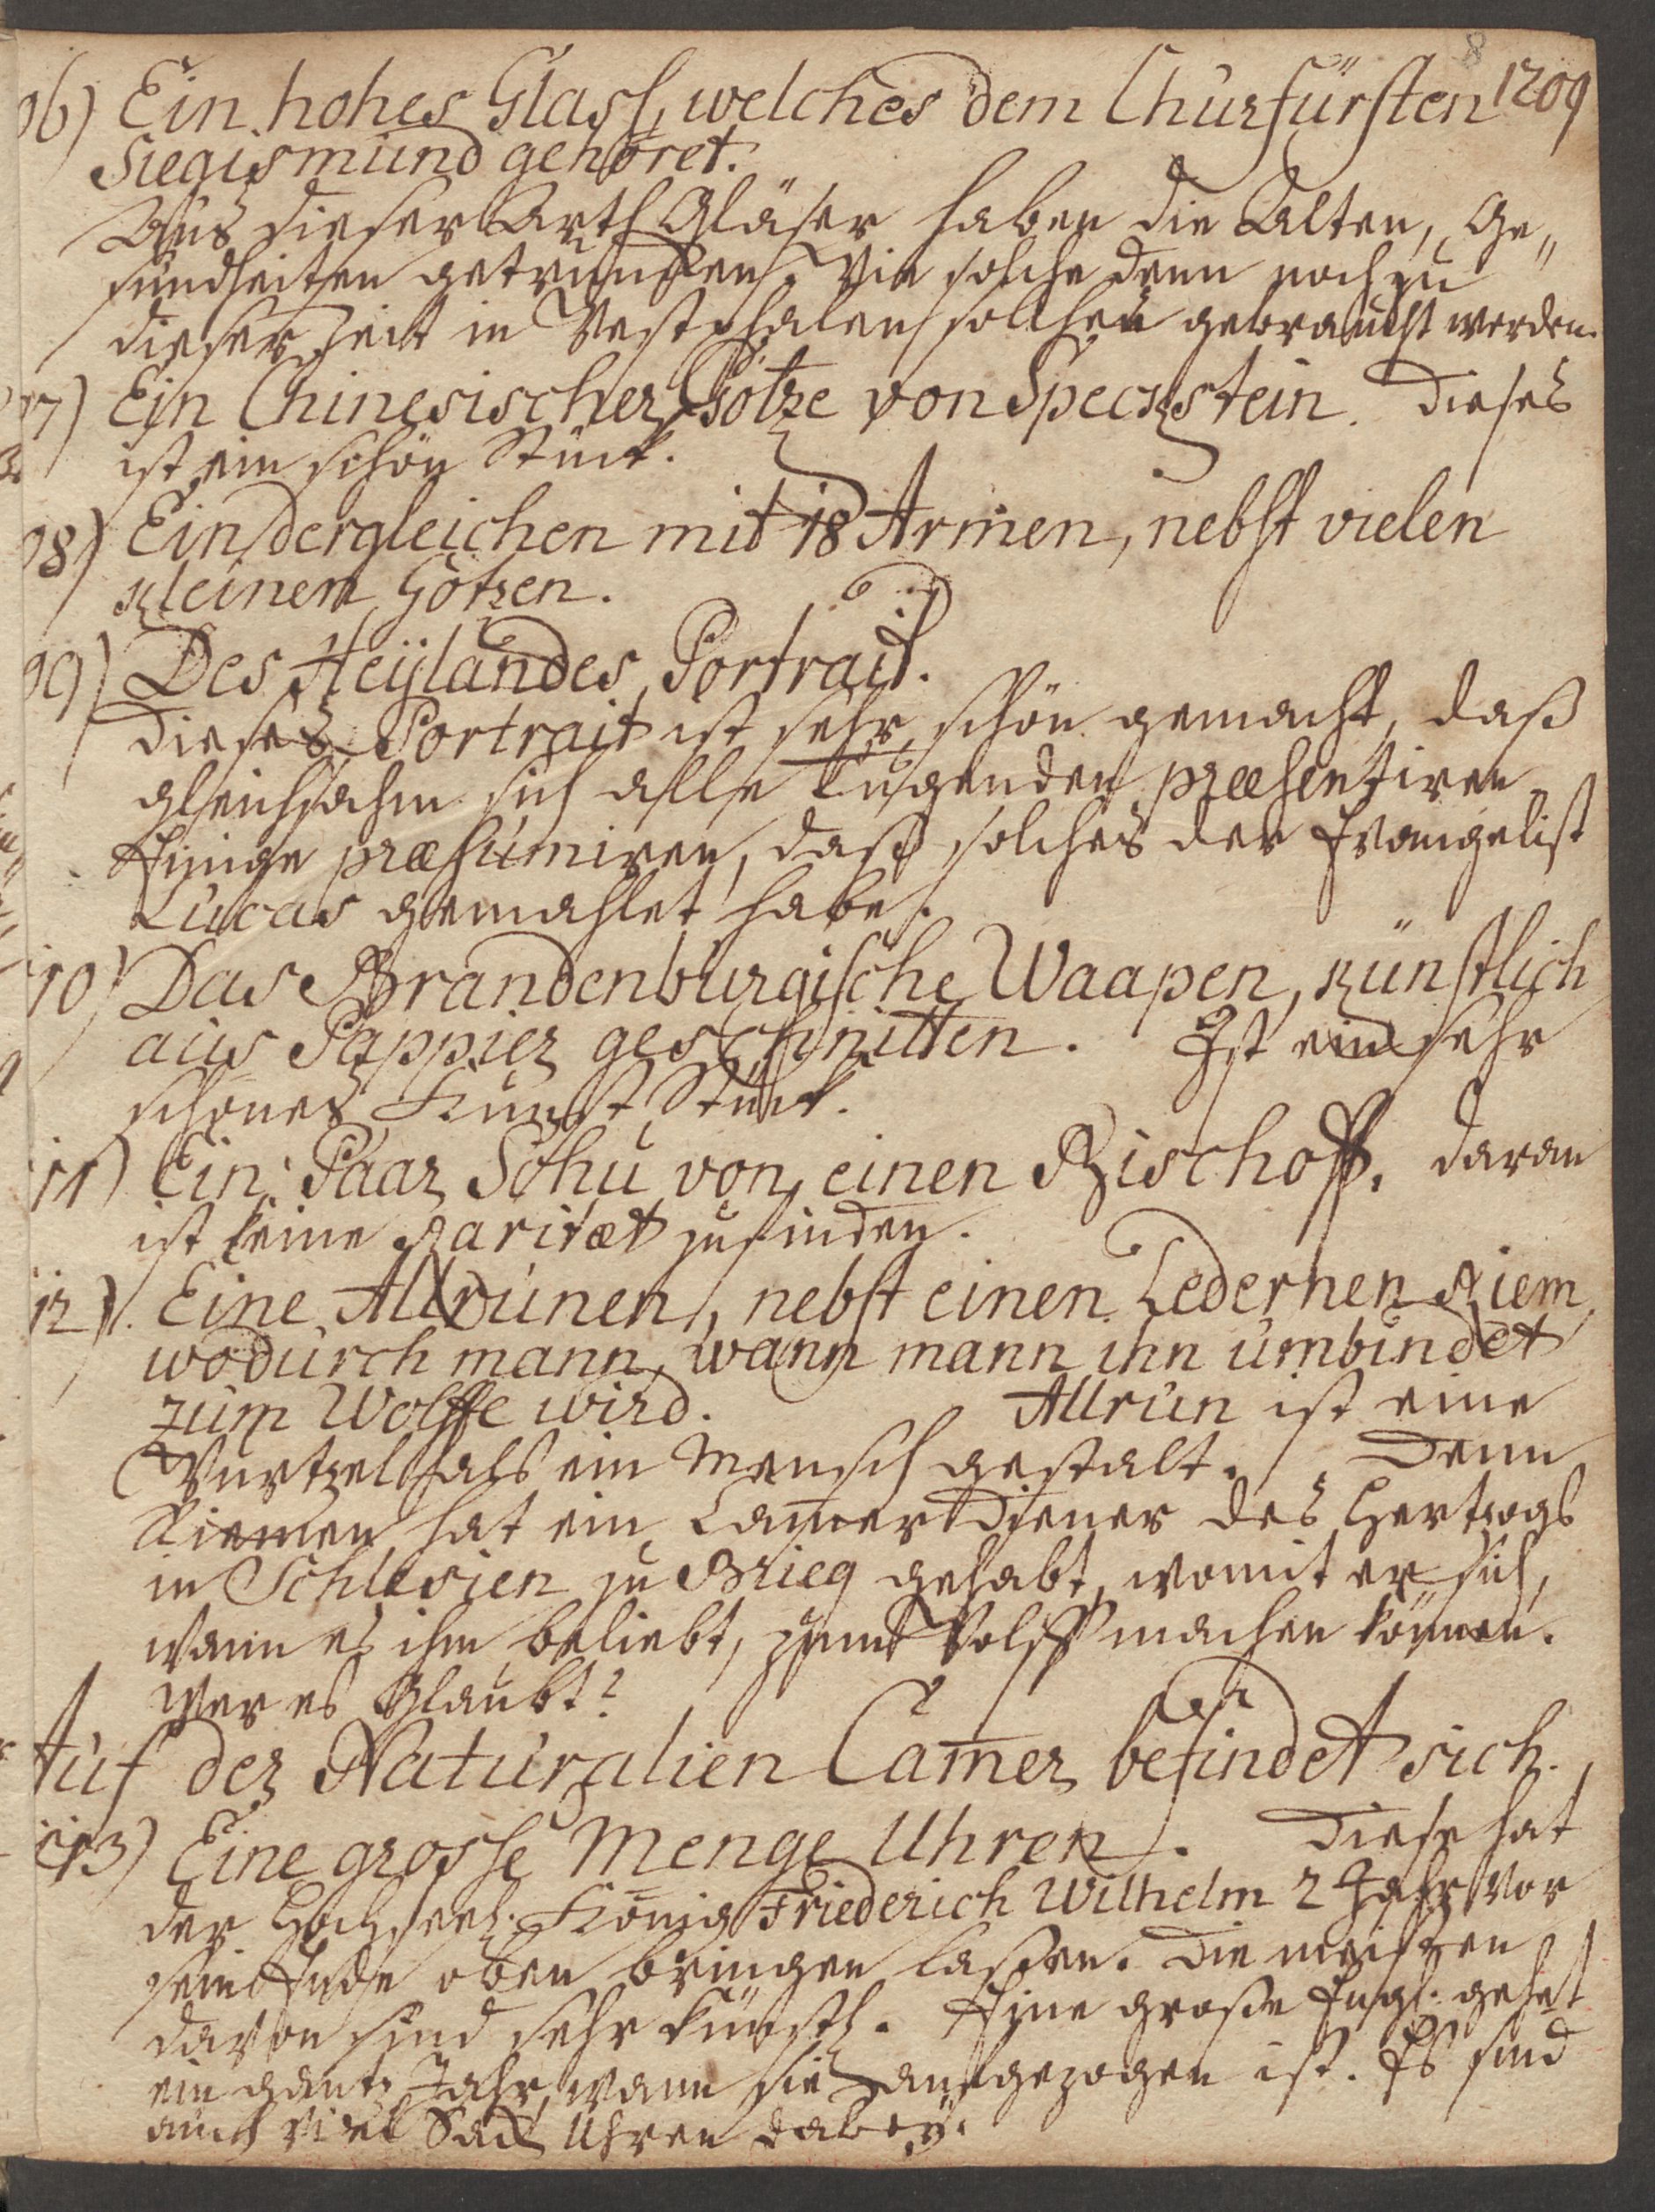 8
1209
06) Ein hohes Glasß, welches dem Churfürsten
Siegismund gehöret.
Aus dieser Arth Gläser haben die Alten, Ge„
sundheiten getruncken. Wie solche denn noch zu
dieser Zeit in Westphalen sollen gebraucht werden.
07) Ein Chinesischer Götze von Speckstein. Dieses
ist ein schön Stück.
08) Ein dergleichen mit 18 Armen, nebst vielen
kleinern Götzen.
09) Des Heÿlandes Portrait.
Dieses Portrait ist sehr schön gemacht, daß
gleichsahm sich alle Tugenden præsentiren
Einige præsumiren, daß solches der Evangelist
Lucas gemahlet habe.
110) Das Brandenburgische Waapen, künstlich
aus Pappier geschnitten. Ist ein sehr
schönes Kunst Stück.
111) Ein Paar Schu von einen Bischoff. daran
ist keine Raritæt zu finden.
112) Eine Allrunen, nebst einen Ledernen Riem,
wodurch mann, wann mann ihn umbindet
zum Wolffe wird. Allrun ist eine
Wurtzel als ein Mensch gestalt. Denn
Riemen hat ein Camerdiener des Hertzogs
in Schlesien zu Brieg gehabt, womit er sich,
wann es ihm beliebt, zum Wolff machen können.
Wer es Glaubt?
Auf der Naturalien Camer befindet sich.
113) Eine grosse Menge Uhren. Diese hat
der Hochseel. König Friederich Wilhelm 2 Jahr vor
sein Ende oben bringen laßen. Die meisten
davon sind sehr künstl. Eine große Engl. gehet
ein gantz Jahr, wann sie aufgezogen ist. Es sind
auch viel Sack Uhren dabeÿ.